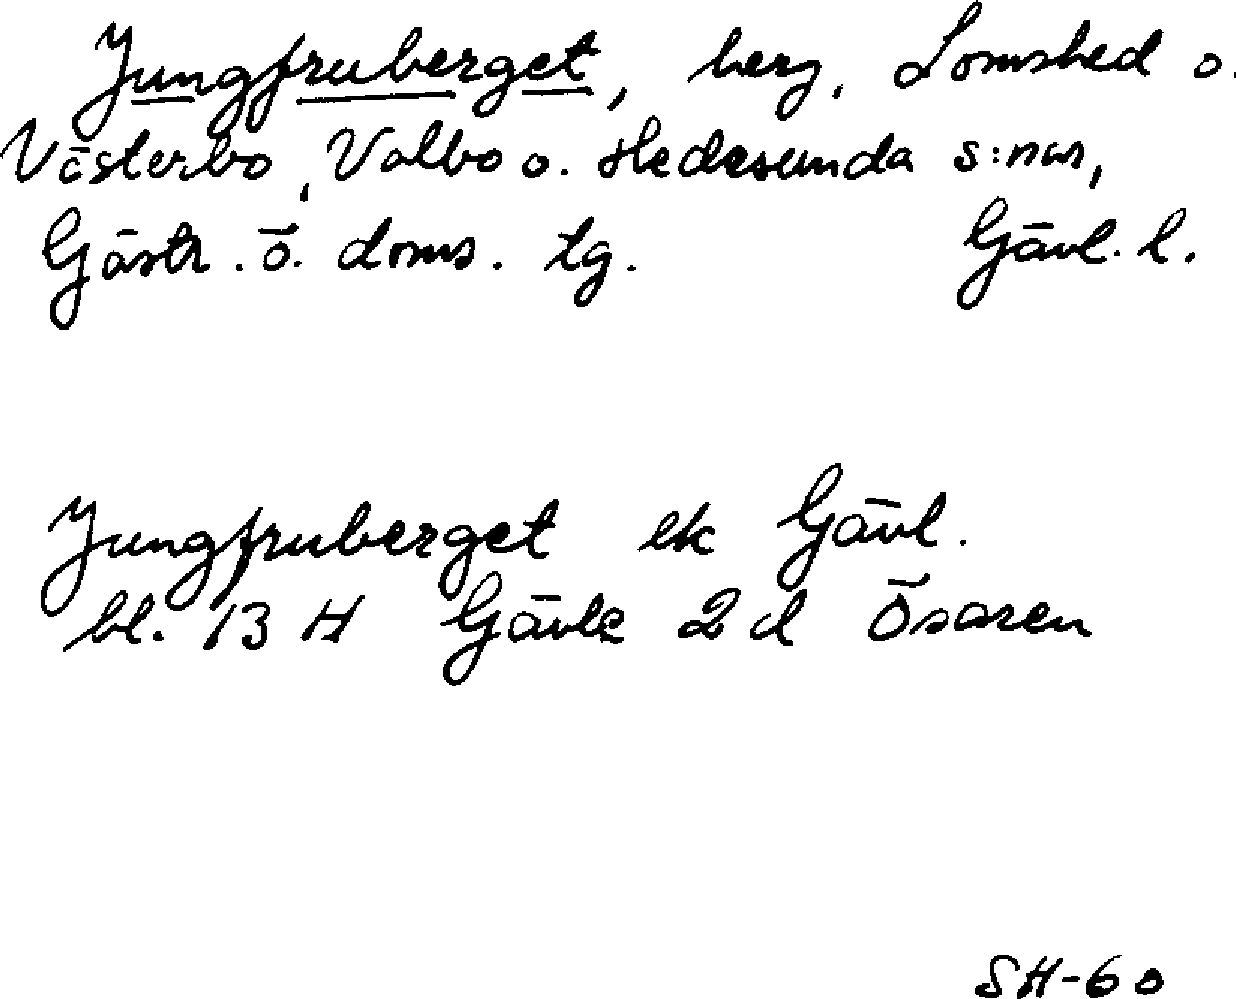 Jungfruberget, berg, Lomshed o.
Västerbo, Valbo o. Hedesunda s:nar,
Gästr. ö. doms. tg. Gävl. l.
Jungfruberget ek Gävl.
bl. 13 H Gävle 2 d Ösaren
SH-60